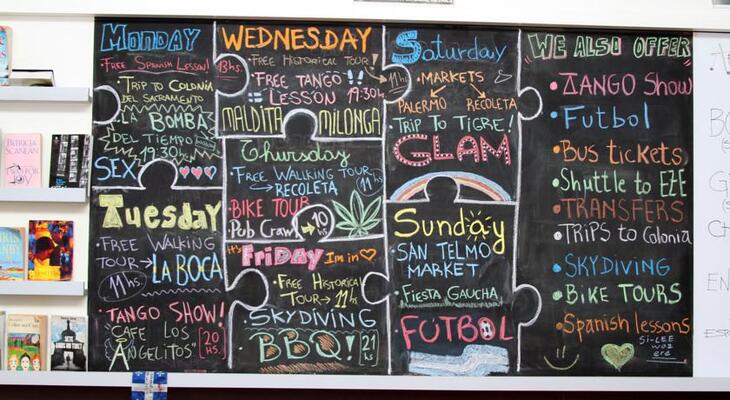 MONDAY
FREE SPANISH LESSON!
TRIP TO COLONIA
DEL SACRAMENTO
LA BOMBA
DEL TIEMPO
19:30hs
SEX
TUESDAY
FREE WALKING
TOUR → LA BOCA
11hs
TANGO SHOW!
"CAFE LOS
ANGELITOS"
20
HS.
WEDNESDAY
FREE HISTORICAL TOUR
11hs
FREE TANGO !!
LESSON 19:30hs
MALDITA MILONGA
Thursday
FREE WALKING TOUR
→ RECOLETA
11hs
BIKE TOUR
Pub Crawl →
10
hs
FRIDAY I'm in
FREE HISTORICAL
TOUR → 11hs
SKYDIVING
BBQ!
21
hs
Saturday
• MARKETS
PALERMO RECOLETA
• TRIP TO TIGRE!
GLAM
Sunday
• SAN TELMO
MARKET
• FIESTA GAUCHA
FUTBOL
"WE ALSO OFFER"
• TANGO Show
• Futbol
• Bus tickets
• Shuttle to EZE
• TRANSFERS
• TRiPS to Colonia
• SKYDIVING
• BiKE TOURS
• Spanish lessons
Si-LEE
woz
ere
PATRICIA
SCANLAN